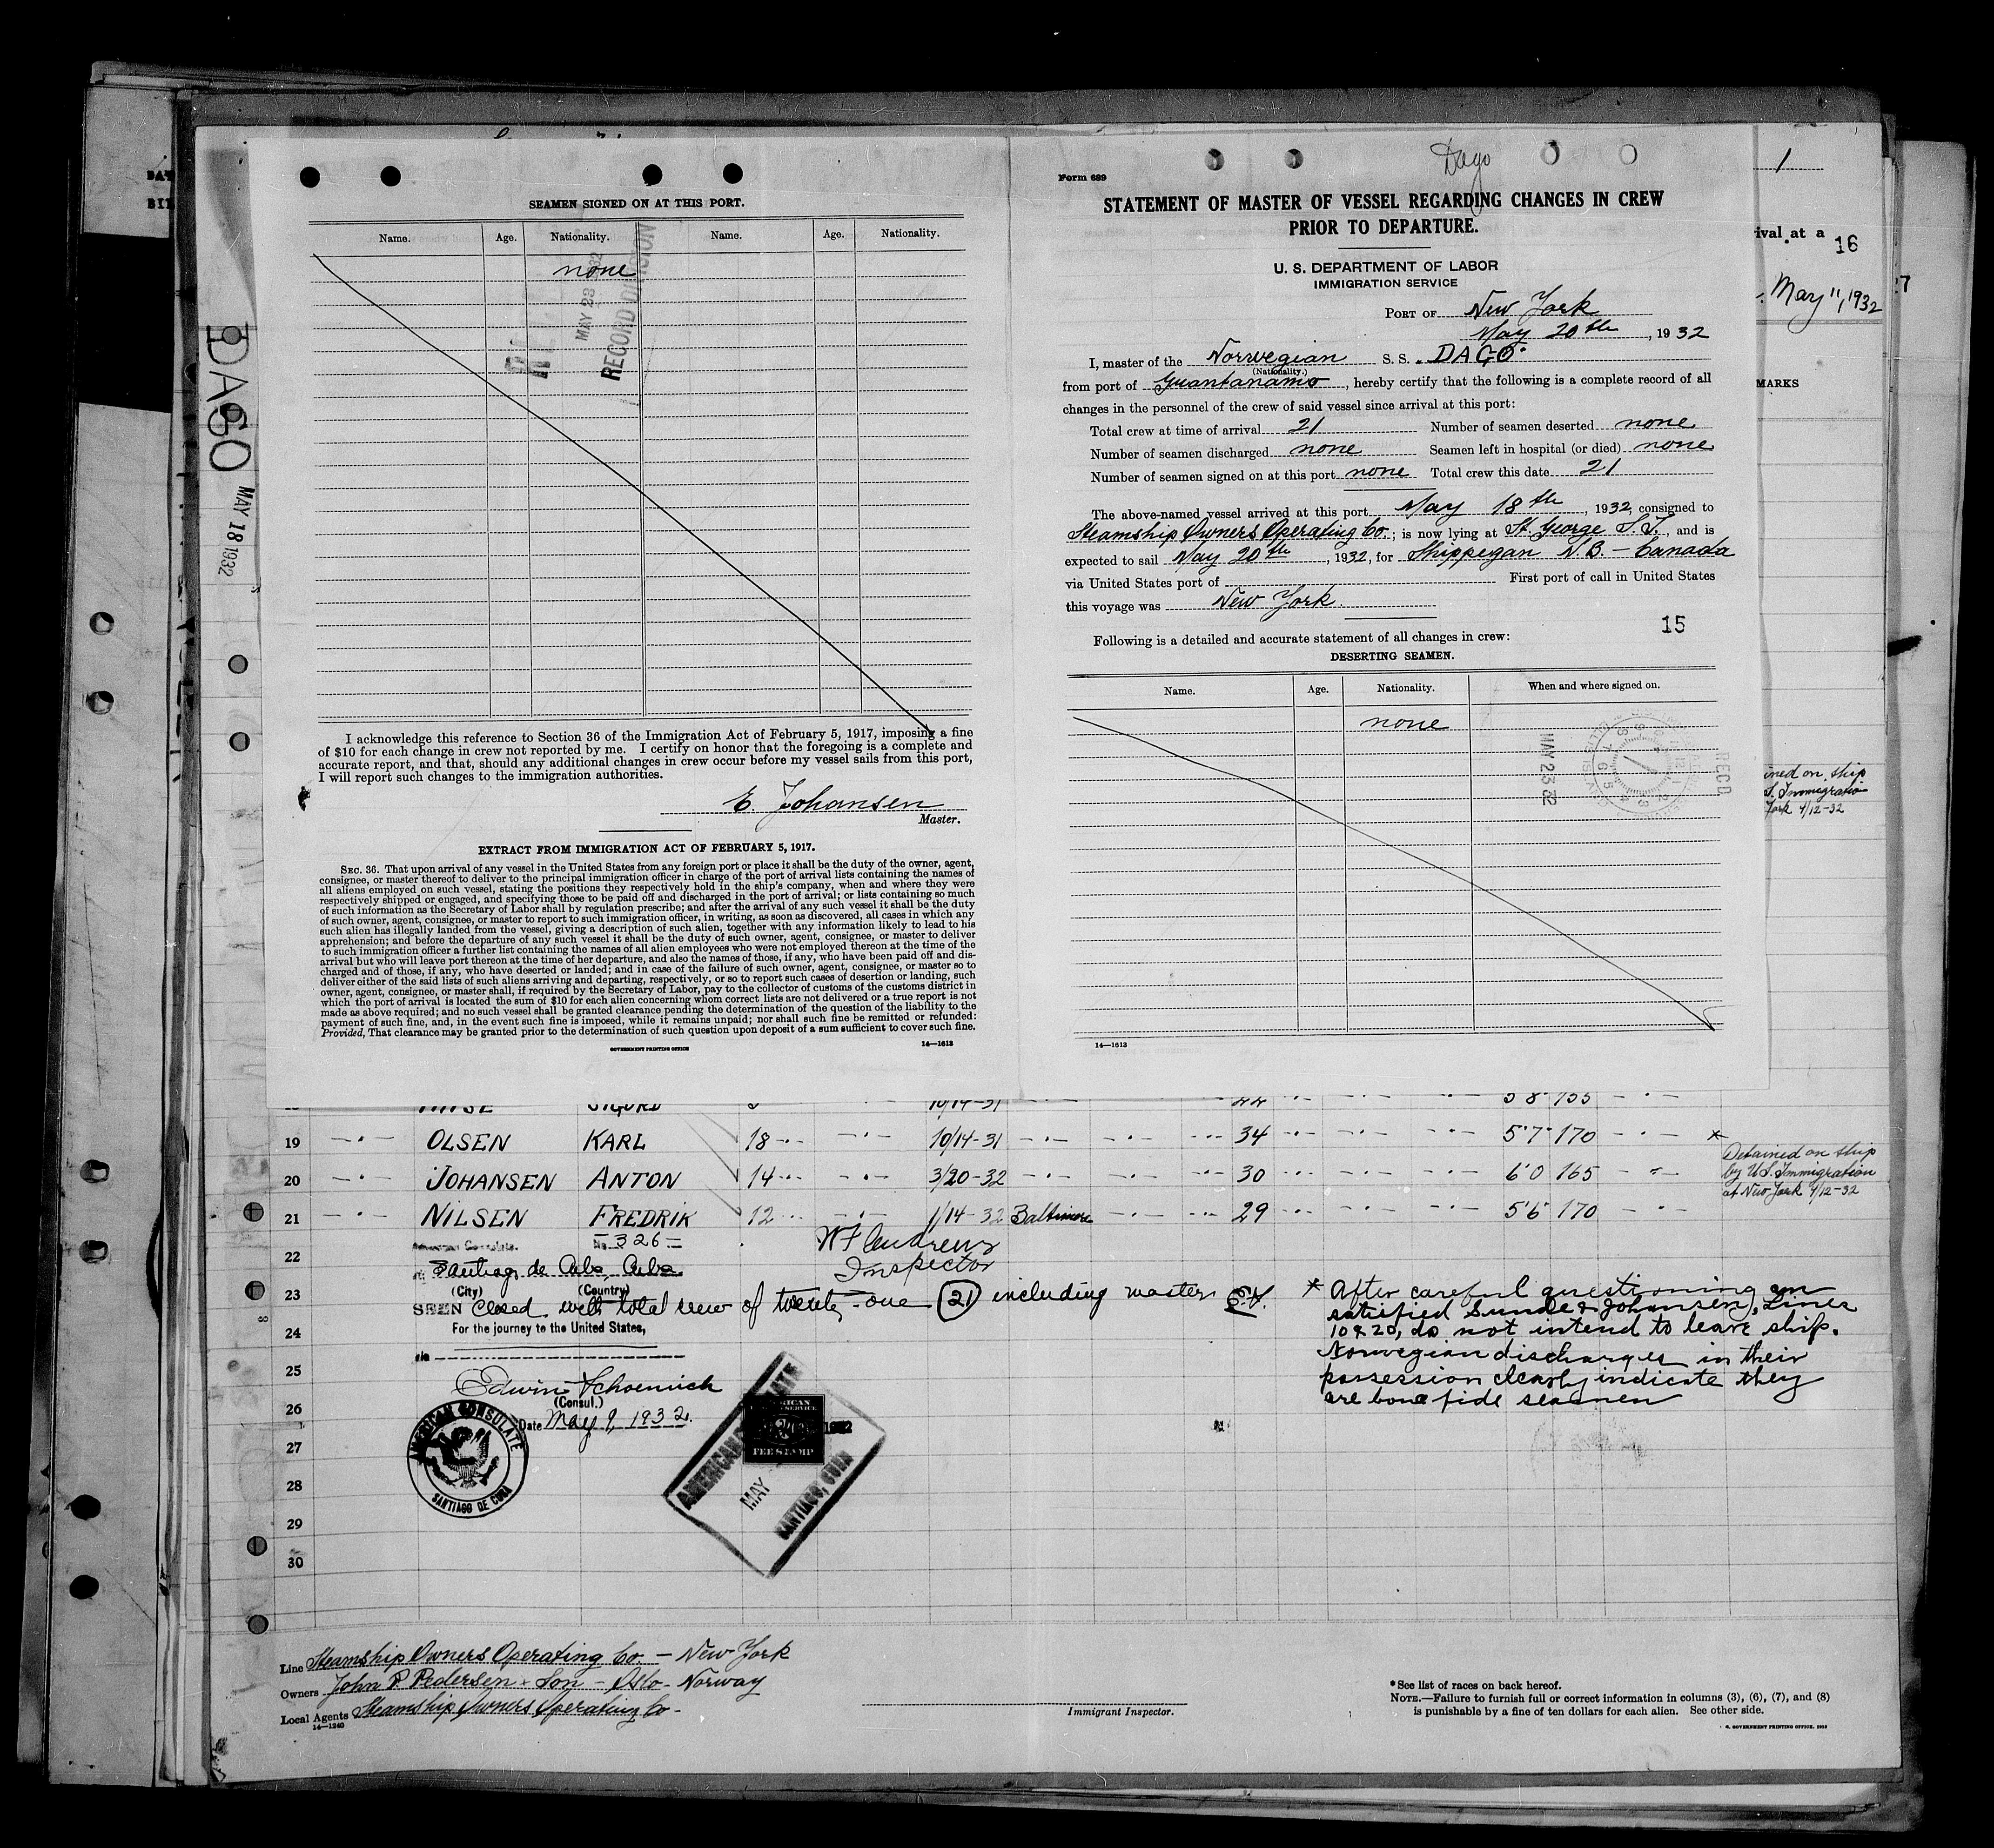 SEAMEN SIGNED ON AT THIS PORT.
Name. Age. Nationality. Name. Age. Nationality.
none
MAY 23 1932
RECORD DIVISION
I acknowledge this reference to Section 36 of the Immigration Act of February 5, 1917, imposing a fine
of $10 for each change in crew not reported by me. I certify on honor that the foregoing is a complete and
accurate report, and that, should any additional changes in crew occur before my vessel sails from this port,
I will report such changes to the immigration authorities.
E. Johansen
Master.
EXTRACT FROM IMMIGRATION ACT OF FEBRUARY 5, 1917.
SEC. 36. That upon arrival of any vessel in the United States from any foreign port or place it shall be the duty of the owner, agent,
consignee, or master thereof to deliver to the principal immigration officer in charge of the port of arrival lists containing the names of
all aliens employed on such vessel, stating the positions they respectively hold in the ship's company, when and where they were
respectively shipped or engaged, and specifying those to be paid off and discharged in the port of arrival; or lists containing so much
of such information as the Secretary of Labor shall by regulation prescribe; and after the arrival of any such vessel it shall be the duty
of such owner, agent, consignee, or master to report to such immigration officer, in writing, as soon as discovered, all cases in which any
such alien has illegally landed from the vessel, giving a description of such alien, together with any information likely to lead to his
apprehension; and before the departure of any such vessel it shall be the duty of such owner, agent, consignee, or master to deliver
to such immigration officer a further list containing the names of all alien employees who were not employed thereon at the time of the
arrival but who will leave port thereon at the time of her departure, and also the names of those, if any, who have been paid off and dis-
charged and of those, if any, who have deserted or landed; and in case of the failure of such owner, agent, consignee, or master so to
deliver either of the said lists of such aliens arriving and departing, respectively, or so to report such cases of desertion or landing, such
owner, agent, consignee, or master shall, if required by the Secretary of Labor, pay to the collector of customs of the customs district in
which the port of arrival is located the sum of $10 for each alien concerning whom correct lists are not delivered or a true report is not
made as above required; and no such vessel shall be granted clearance pending the determination of the question of the liability to the
payment of such fine, and, in the event such fine is imposed, while it remains unpaid; nor shall such fine be remitted or refunded:
Provided, That clearance may be granted prior to the determination of such question upon deposit of a sum sufficient to cover such fine.
GOVERNMENT PRINTING OFFICE 14—1613
Dago
Form 689
STATEMENT OF MASTER OF VESSEL REGARDING CHANGES IN CREW
PRIOR TO DEPARTURE.
U. S. DEPARTMENT OF LABOR
IMMIGRATION SERVICE
PORT OF New York
May 20th, 1932
I, master of the Norwegian S. S. DAGO
(Nationality.)
from port of Guantanamo, hereby certify that the following is a complete record of all
changes in the personnel of the crew of said vessel since arrival at this port:
Total crew at time of arrival 21 Number of seamen deserted none
Number of seamen discharged none Seamen left in hospital (or died) none
Number of seamen signed on at this port none Total crew this date 21
The above-named vessel arrived at this port May 18th, 1932, consigned to
Steamship Owners Operating Co.; is now lying at St. George S.I., and is
expected to sail May 20th, 1932, for Shippegan N.B. - Canada
via United States port of First port of call in United States
this voyage was New York.
15
Following is a detailed and accurate statement of all changes in crew:
DESERTING SEAMEN.
Name. Age. Nationality. When and where signed on.
none
MAY 23 32
RECD
14—1613
DAGO
MAY 18 1932
1
ival at a
16
May 11, 1932
MARKS
ined on ship
S. Immigration
York 4/12-32
SIGURD 10/14-31 22 5 8 155
19 OLSEN KARL 18 10/14-31 34 5'7" 170
20 JOHANSEN ANTON 14 3/20-32 30 6'0 165
Detained on ship
by U.S. Immigration
at New York 4/12-32
21 NILSEN FREDRIK 12 1/14-32 Baltimore 29 5'6 170
American Consulate. No. 326
22
Santiago de Cuba, Cuba
Inspector
(City) (Country)
23
SEEN Closed with total crew of twenty-one (21) including master E.S.
24
For the journey to the United States,
via
25
Edwin Schoenrich
(Consul.)
26
Date May 9, 1932.
AMERICAN CONSULATE
SANTIAGO DE CUBA
AMERICAN CONSULATE
MAY
SANTIAGO, CUBA
FEE STAMP
* After careful questioning am
satisfied Sunde & Johansen, Lines
10 & 20, do not intend to leave ship.
Norwegian discharges in their
possession clearly indicate they
are bona fide seamen
27
28
29
30
Line Steamship Owners Operating Co. - New York
Owners John P. Pedersen & Son - Oslo - Norway
Local Agents Steamship Owners Operating Co -
14—1240
Immigrant Inspector.
*See list of races on back hereof.
NOTE.—Failure to furnish full or correct information in columns (3), (6), (7), and (8)
is punishable by a fine of ten dollars for each alien. See other side.